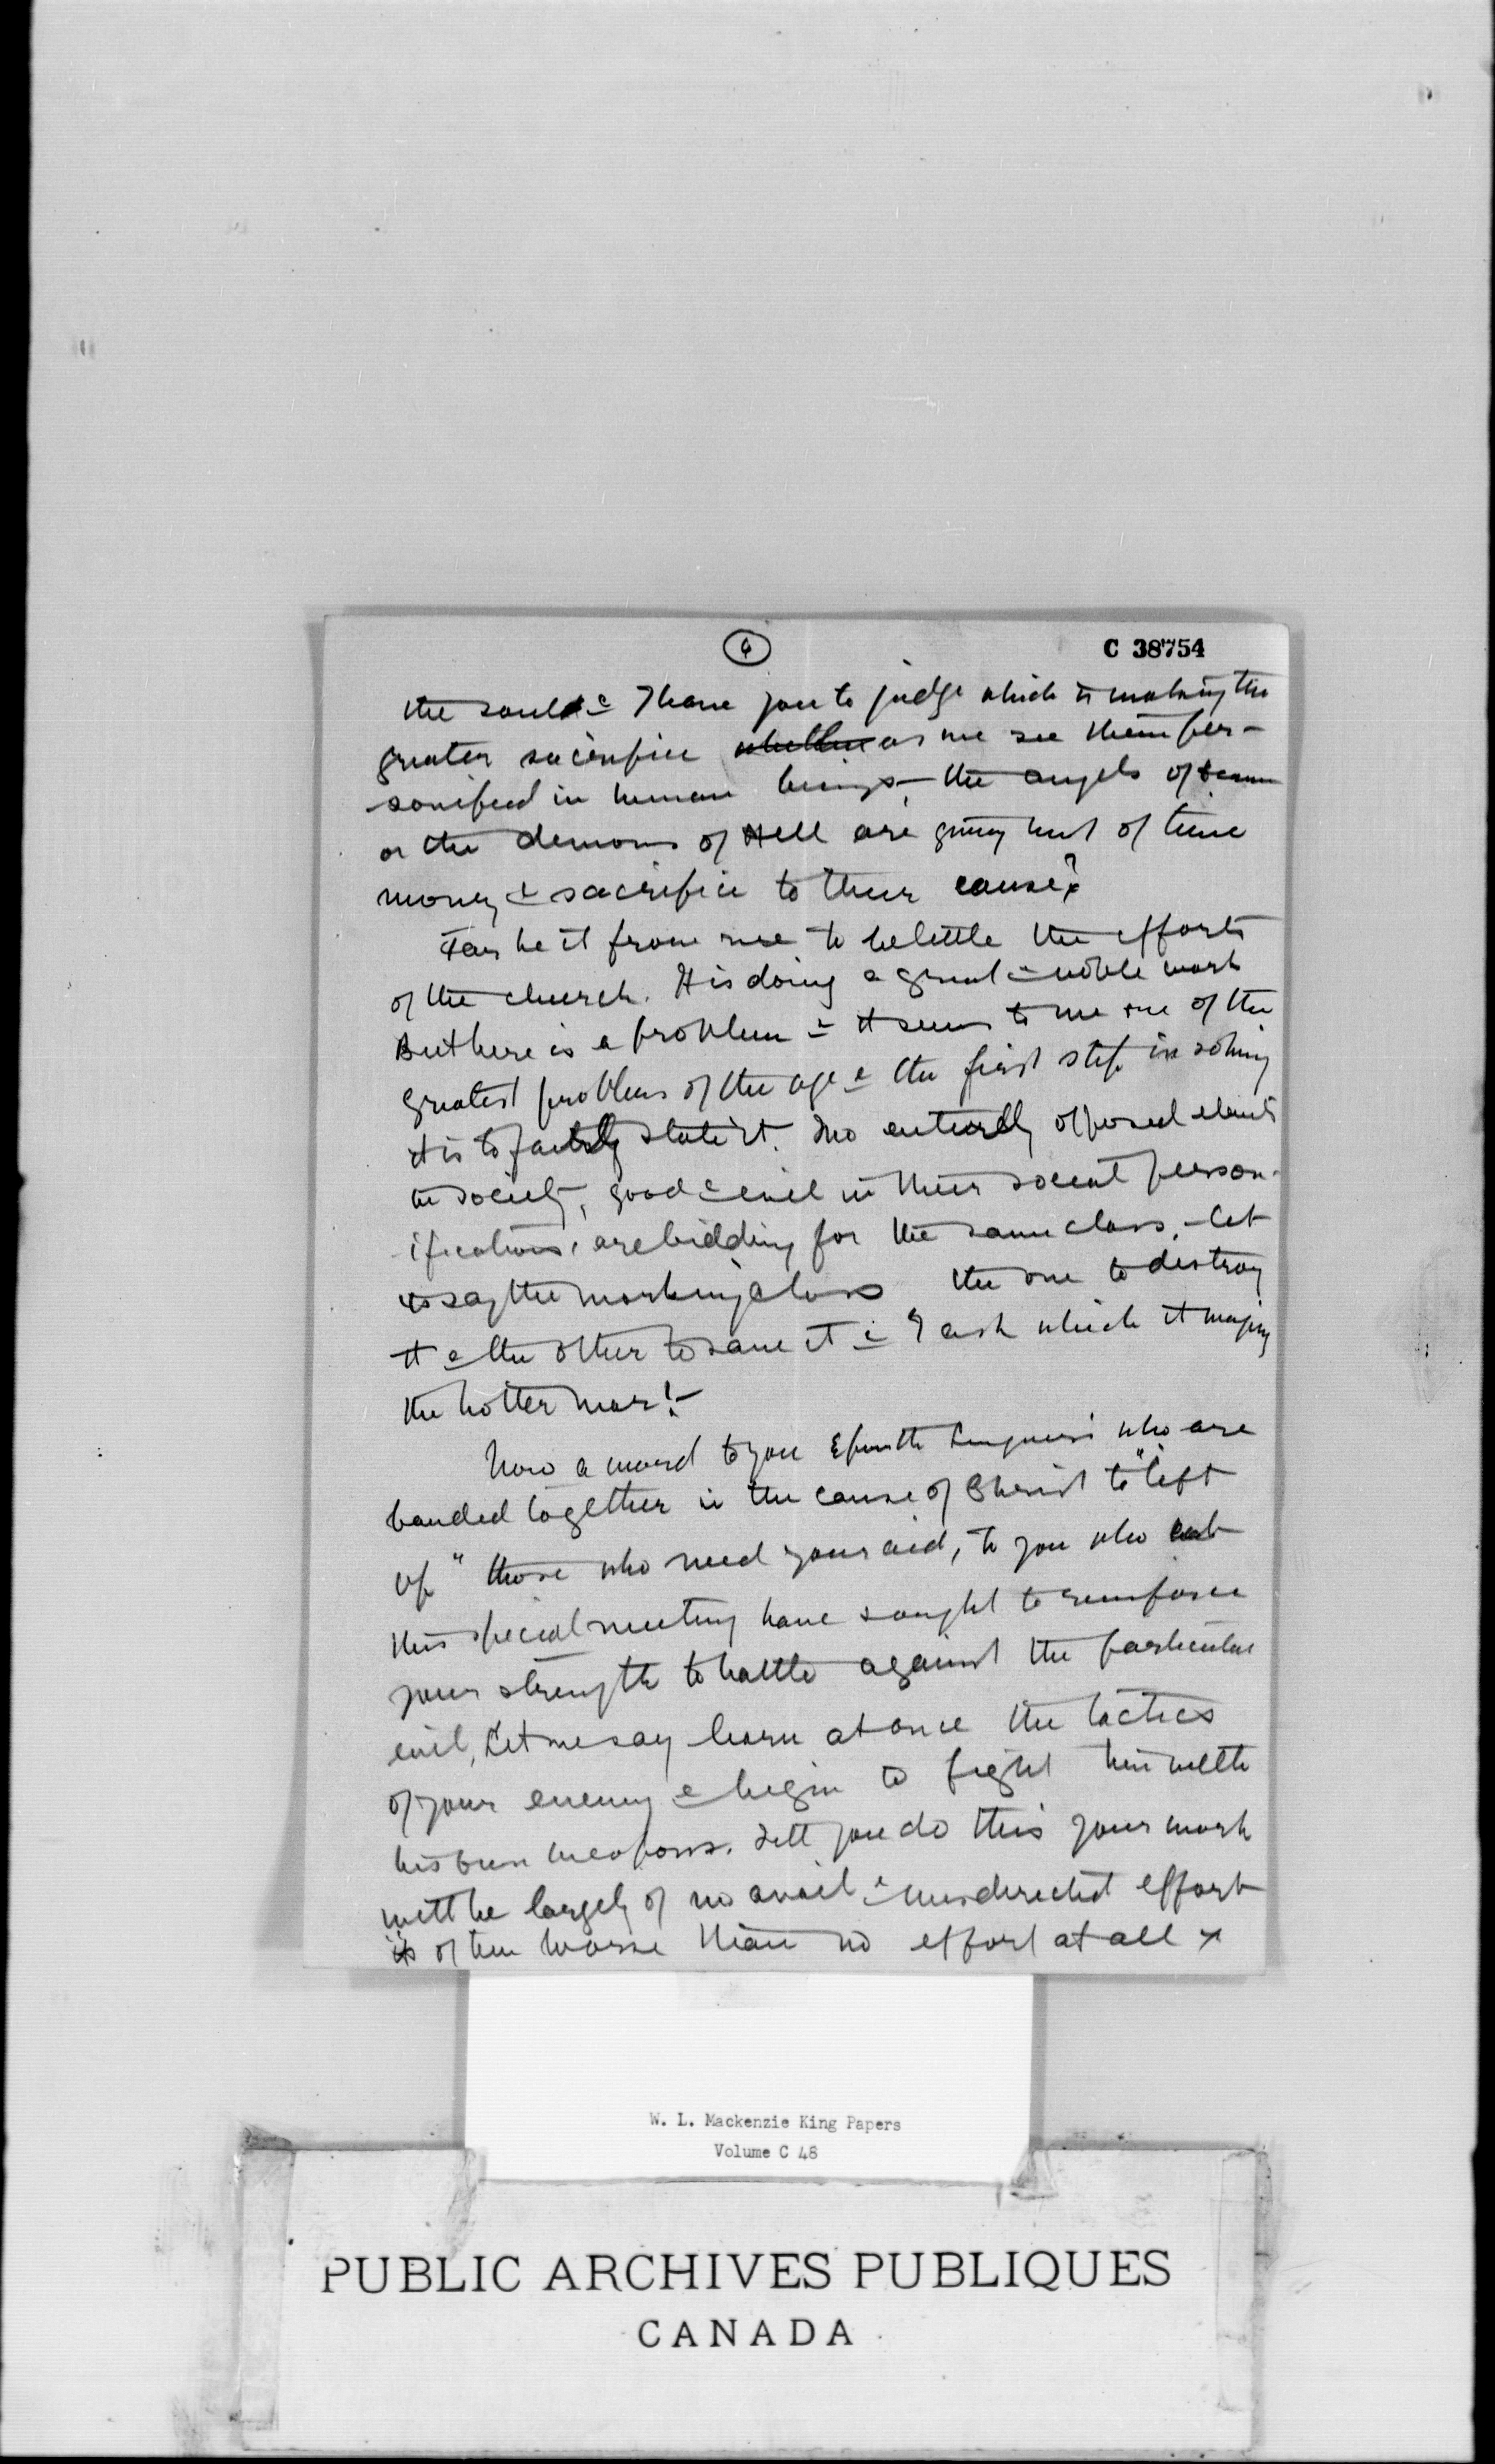 6
C 38754
the souls & I leave you to judge which is making the
greater sacrifice whether as we see them per-
sonified in human beings, the angels of
or the demons of Hell are giving most of time
money & sacrifice to their cause?
Far be it from me to belittle the efforts
of the church. It is doing a great & noble work
But here is a problem & it seems to me one of the
greatest problems of the age & the first step in solving
it is to fairly state it. Two entirely opposed elements
in society, good & evil in their social person-
ifications, are bidding for the same class, let
us say the working class the one to destroy
it & the other to save it & I ask which is waging
the hotter war!-
Now a word to you Epworth Leaguers who are
banded together in the cause of Christ to "lift
up" those who need your aid, to you who at
this special meeting have sought to reinforce
your strength to battle against the particular
evil, Let me say learn at once the tactics
of your enemy & begin to fight him with
his own weapons. Till you do this your work
will be largely of no avail & misdirected effort
is often worse than no effort at all x
W. L. Mackenzie King Papers
Volume C 48
PUBLIC ARCHIVES PUBLIQUES
CANADA